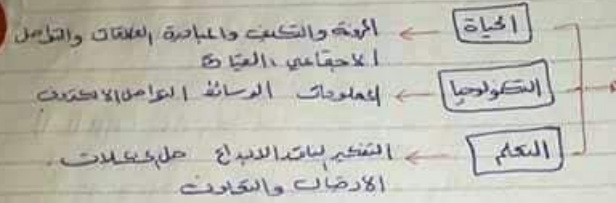 الحياة ← المرونة والتكيف والمبادرة العلاقات والتواصل
الاجتماعي، القيادة
التكنولوجيا ← المعلومات الوسائط التواصل الالكتروني
التعلم ← التفكير الناقد الابداع حل المشكلات.
الاتصال والتعاون